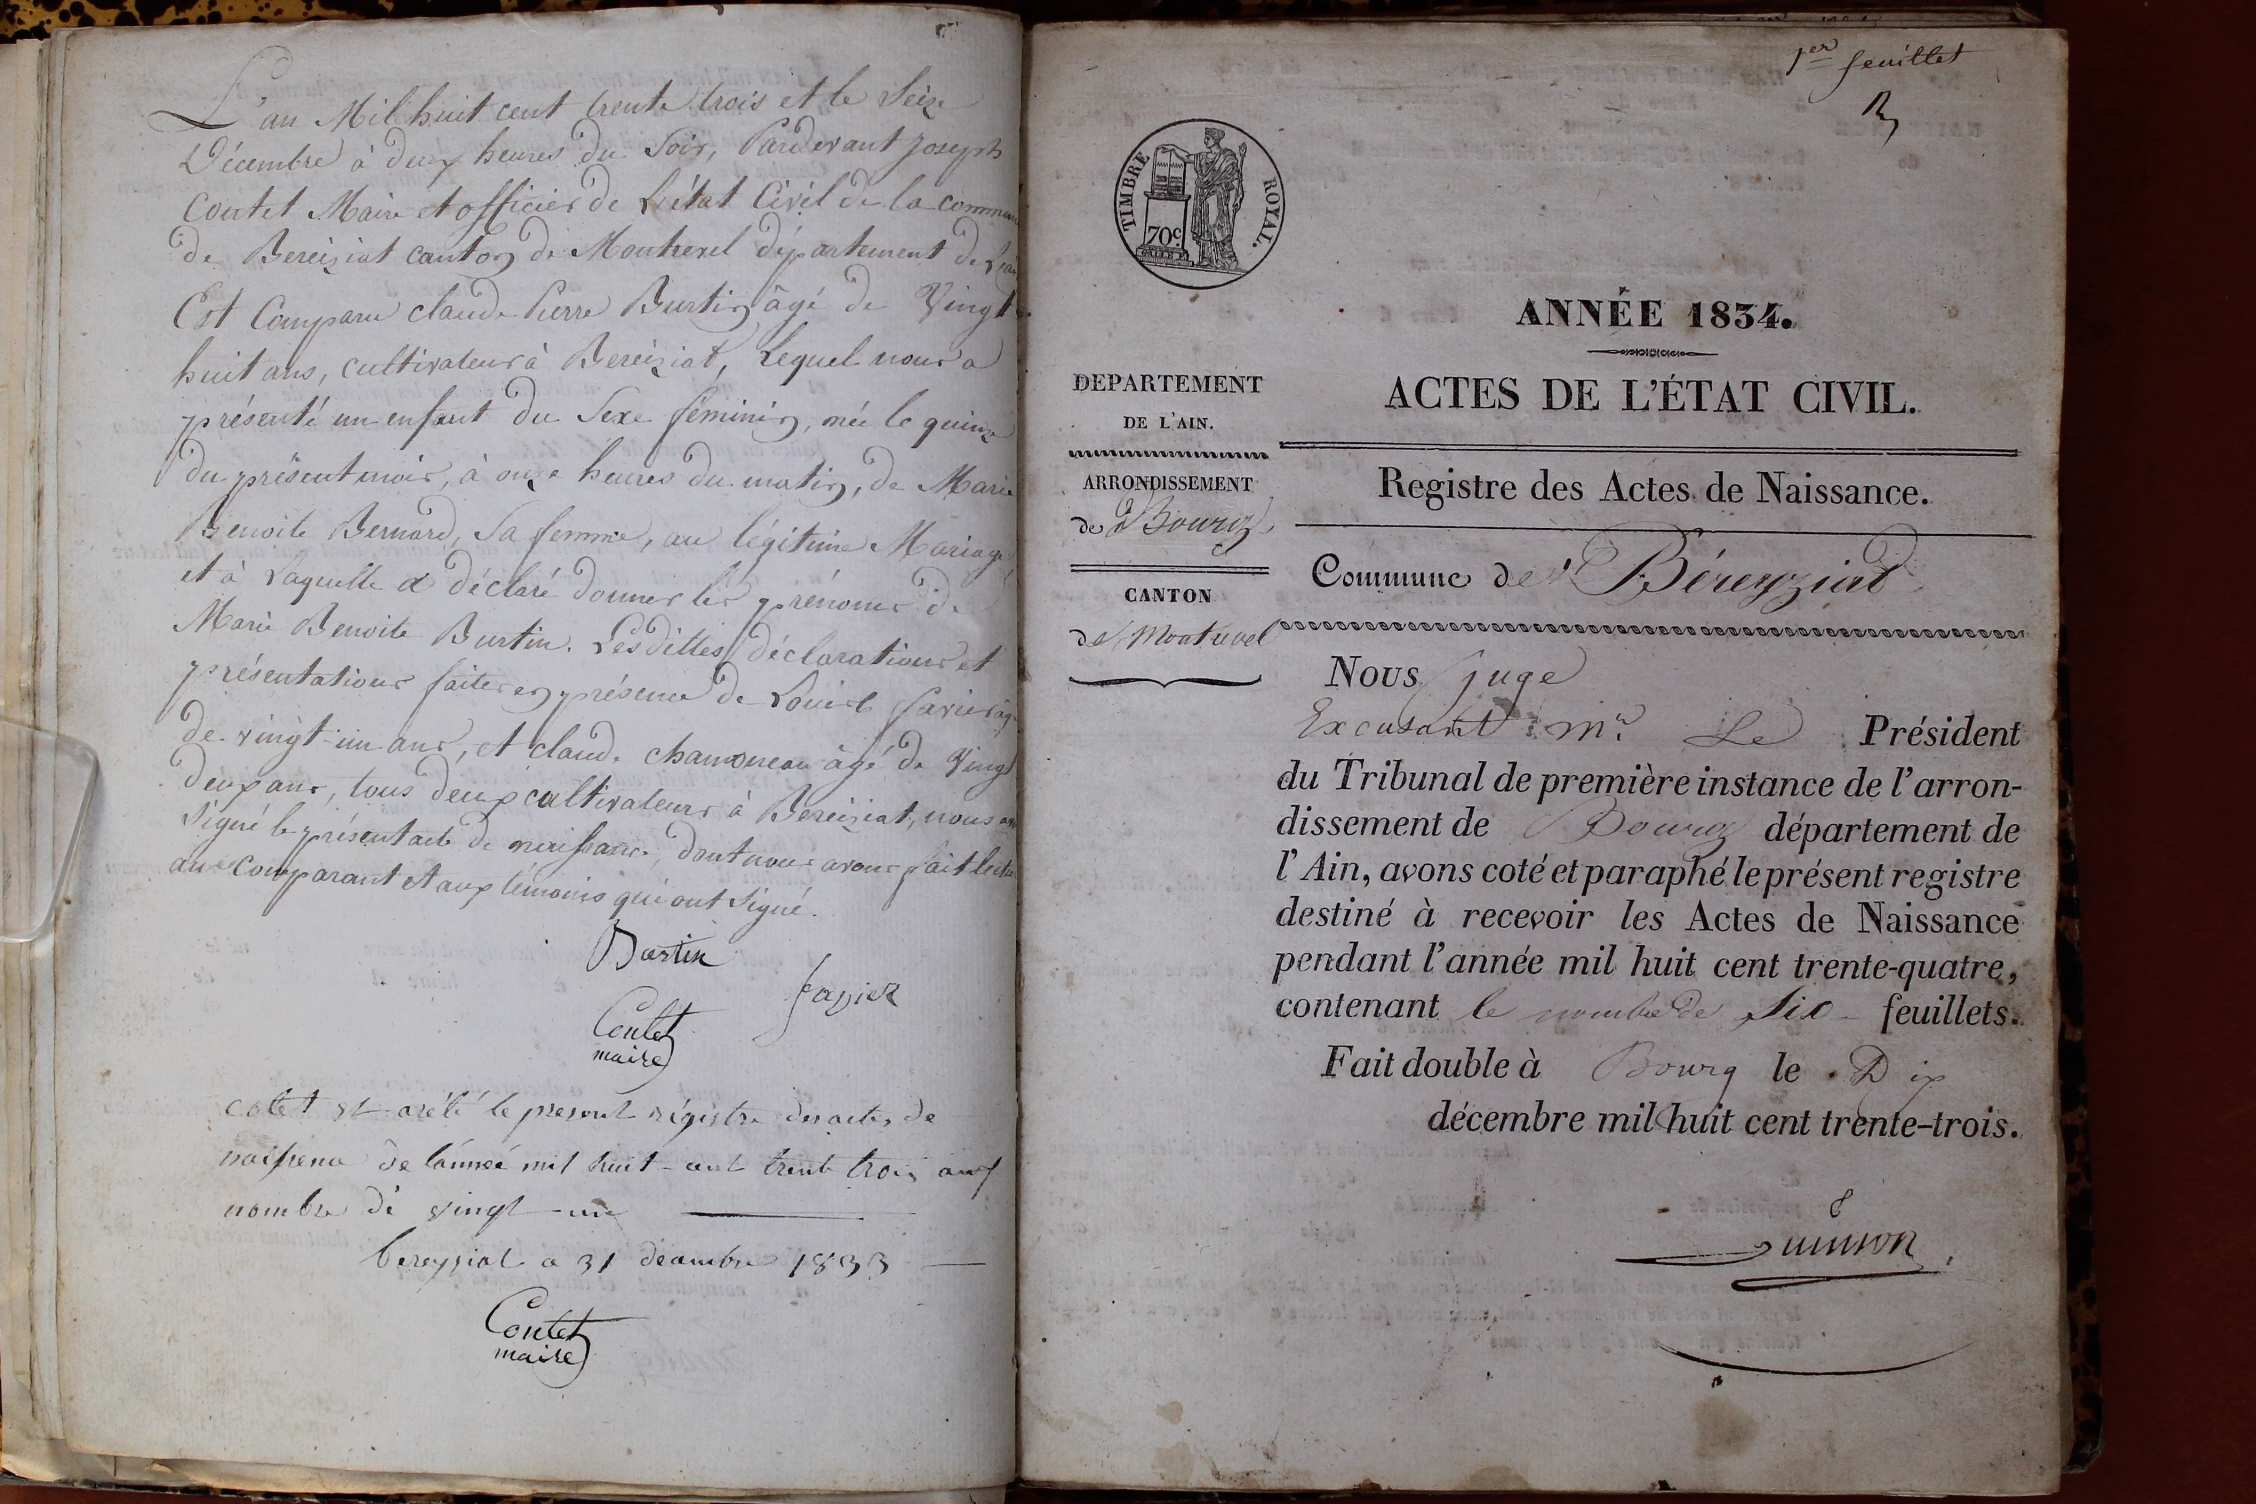 L'an Mil huit cent trente trois et le Seize
Décembre à deux heures du Soir, Pardevant Joseph
Contet Maire et officier de L'état Civil de la commune
de Bereiziat canton de Montrevel département de L'ain
Est Comparu claude Pierre Burtin âgé de Vingt
huit ans, cultivateur à Bereiziat, Lequel nous a
présenté un enfant du Sexe féminin, née le quinze
du présent mois, à onze heures du matin, de Marie
Benoite Bernard, Sa femme, au légitime Mariage,
et à Laquelle a déclaré donner les prénoms de
Marie Benoite Burtin. Lesdittes déclarations et
présentations faites en présence de Favier âgé
de vingt-un ans, et claude chamoneau âgé de Vingt
deux ans, tous deux cultivateurs à Bereiziat, nous
Signé le présent acte de naissance, dont nous avons fait
au comparant et aux témoins qui ont Signé.
Burtin
favier
Contet
maire
et arété le present régistre des actes de
de l'année mil huit cent trente trois au
nombre de vingt-un
bereyziat a 31 decembre 1833
Contet
maire
1er feuillet
TIMBRE ROYAL.
70c.
ANNÉE 1834.
ACTES DE L'ÉTAT CIVIL.
Registre des Actes de Naissance.
DEPARTEMENT
DE L'AIN.
ARRONDISSEMENT
de Bourg
CANTON
de Montrevel
Commune de Béreyziat
NOUS Juge
Excusant Mr. Le Président
du Tribunal de première instance de l'arron-
dissement de Bourg département de
l'Ain, avons coté et paraphé le présent registre
destiné à recevoir les Actes de Naissance
pendant l'année mil huit cent trente-quatre,
contenant le nombre de Six feuillets.
Fait double à Bourg le Dix
décembre mil huit cent trente-trois.